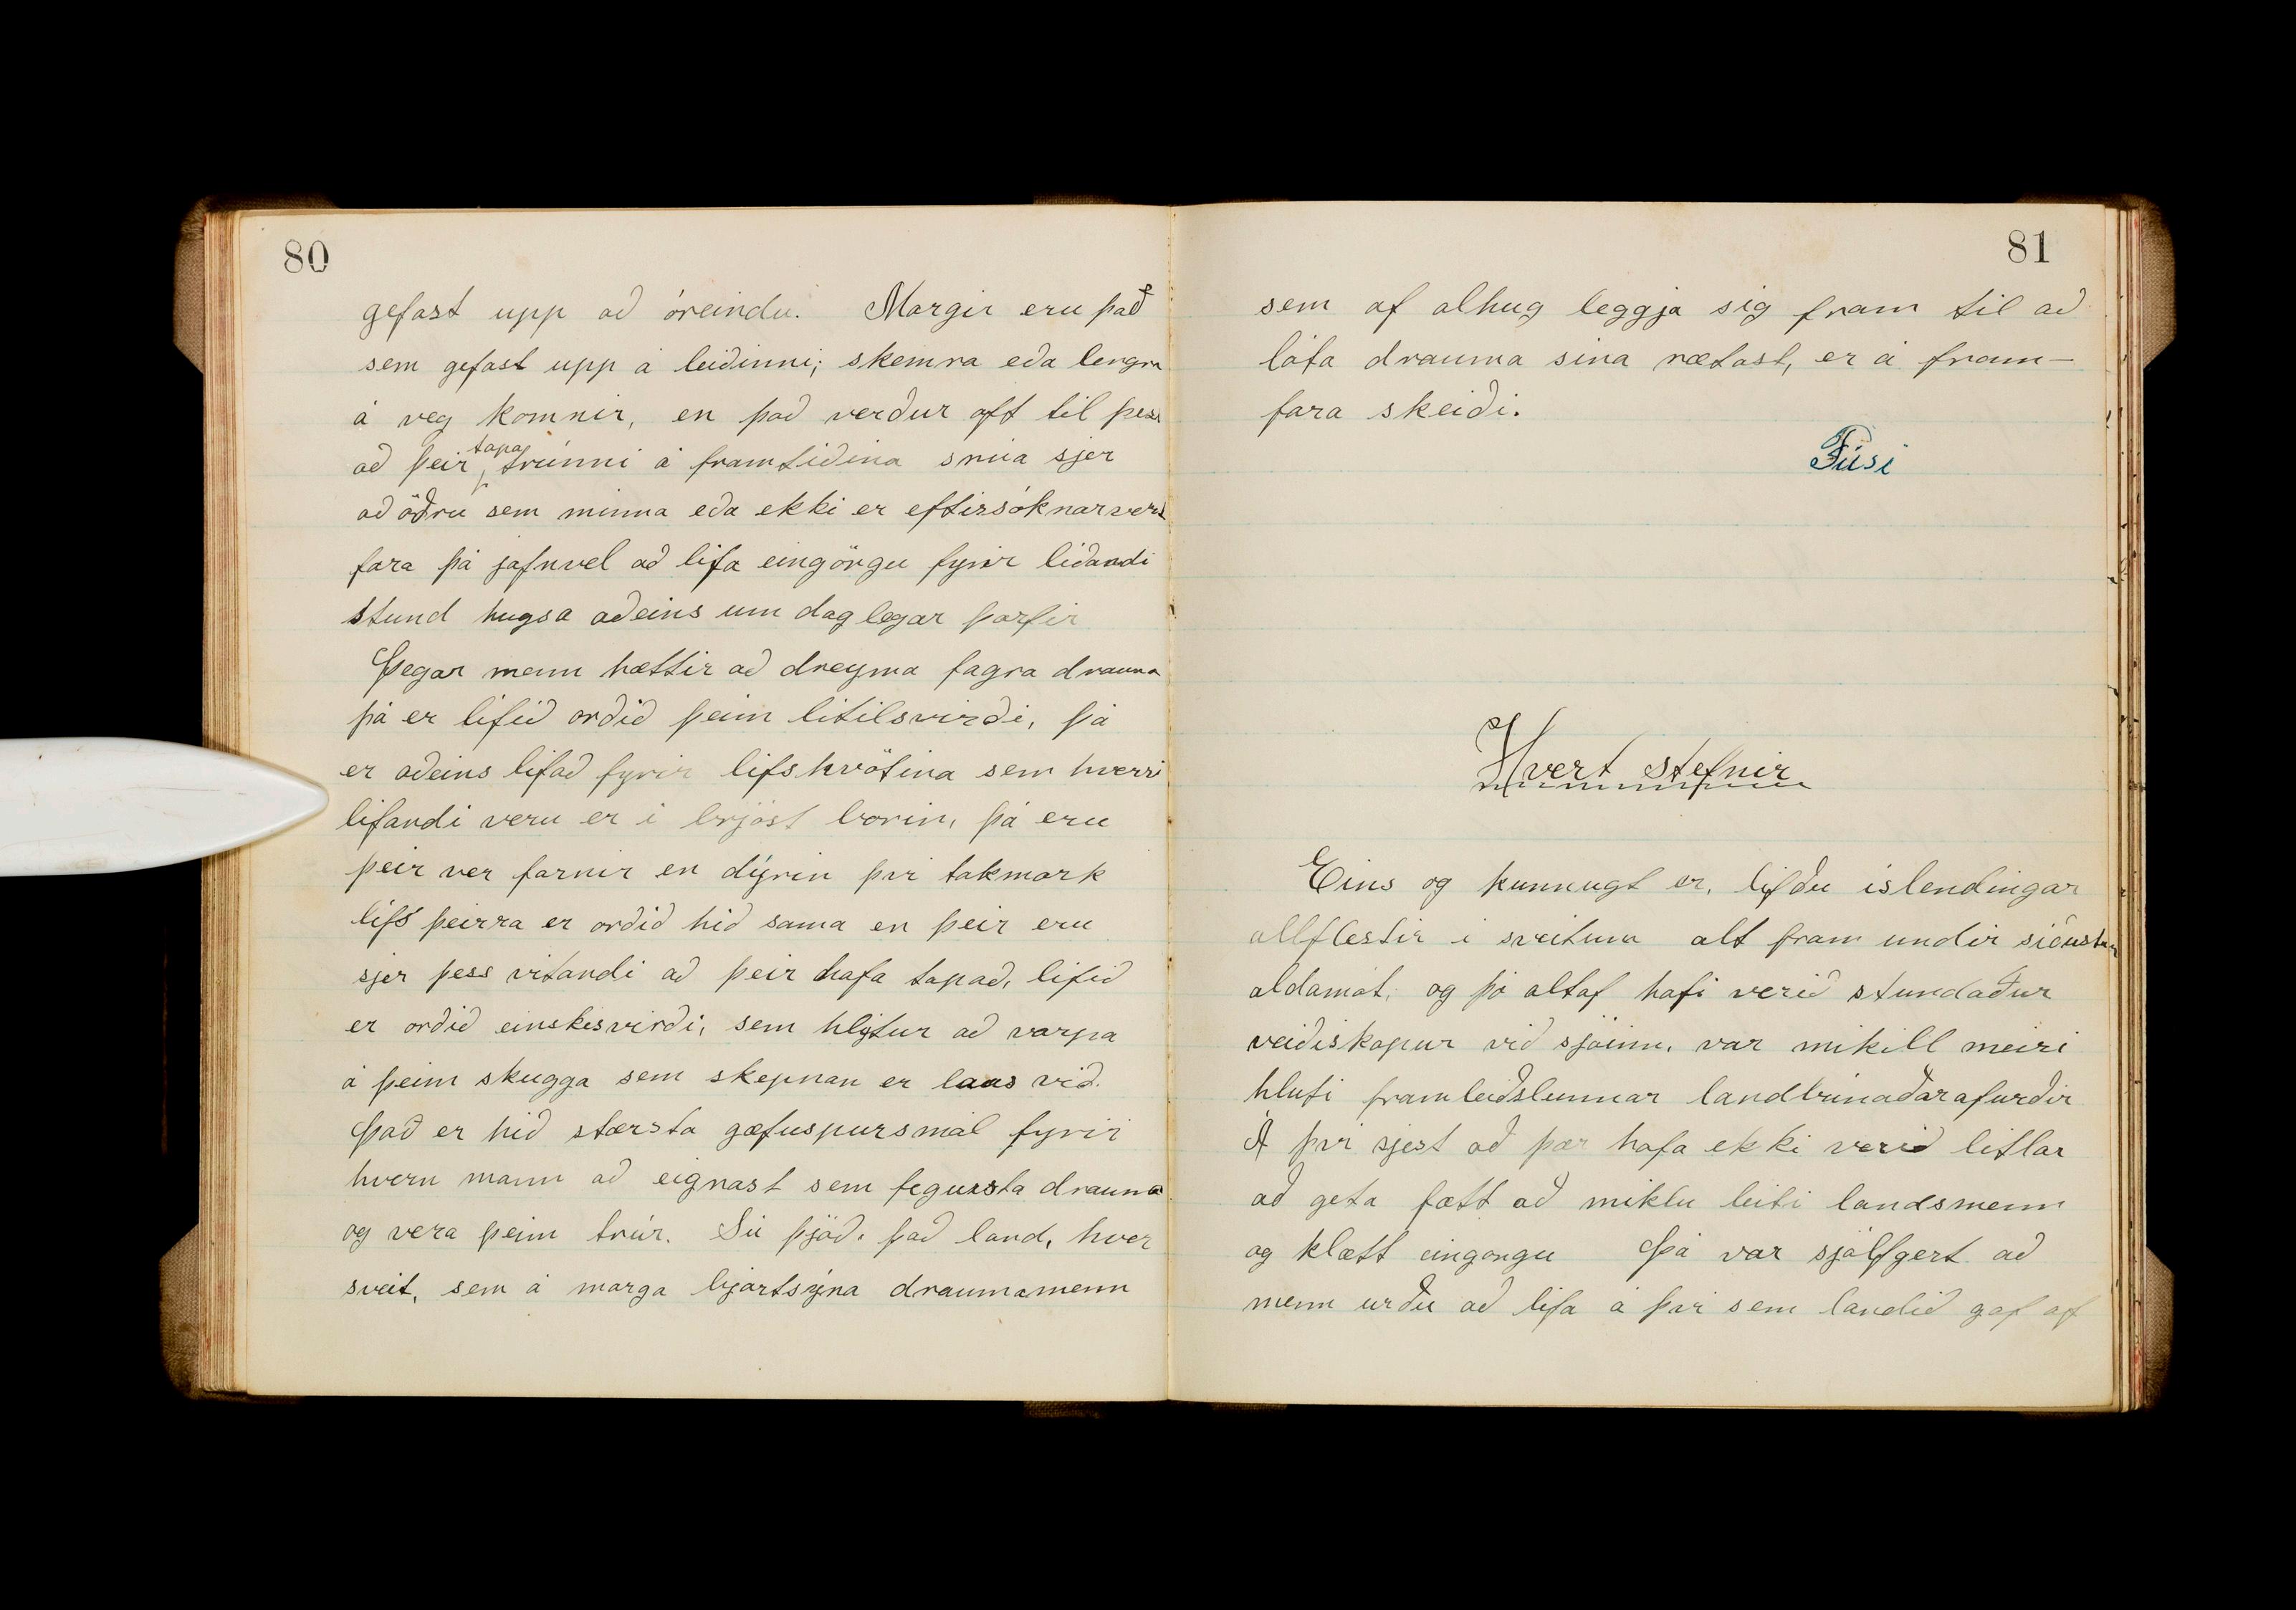 80
gefast upp að óreindu. Margir eru það
sem gefast upp á leiðinni; skemra eða lengra
á veg komnir, en það verður oft til þess
að þeir tapa trúnni á framtíðina snúa sjer
að öðru sem minna eða ekki er eftirsóknarvert
fara þá jafnvel að lifa eingöngu fyrir líðandi
stund hugsa aðeins um daglegar þarfir
Þegar menn hættir að dreyma fagra drauma
þá er lífið orðið þeim lítilsvirði, þá
er aðeins lifað fyrir lífshvötina sem hverri
lifandi veru er í brjóst borin, þá eru
þeir ver farnir en dýrin því takmark
lífs þeirra er orðið hið sama en þeir eru
sjer þess vitandi að þeir hafa tapað, lífið
er orðið einskisvirði, sem hlýtur að varpa
á þeim skugga sem skepnan er laus við.
Það er hið stærsta gæfuspursmál fyrir
hvern mann að eignast sem fegursta drauma
og vera þeim trúr. Sú þjóð, það land, hver
sveit, sem á marga bjartsýna draumamenn
81
sem af alhug leggja sig fram til að
láta drauma sína rætast, er á fram-
fara skeiði.
Fúsi
Hvert stefnir
Eins og kunnugt er, lifðu íslendingar
allflestir í sveitum alt fram undir síðustu
aldamót, og þó altaf hafi verið stundaður
veiðiskapur við sjóinn, var mikill meiri
hluti framleiðslunnar landbúnaðarafurðir
Á því sjest að þær hafa ekki verið litlar
að geta fætt að miklu leiti landsmenn
og klætt eingöngu Þá var sjálfgert að
menn urðu að lifa á því sem landið gaf af